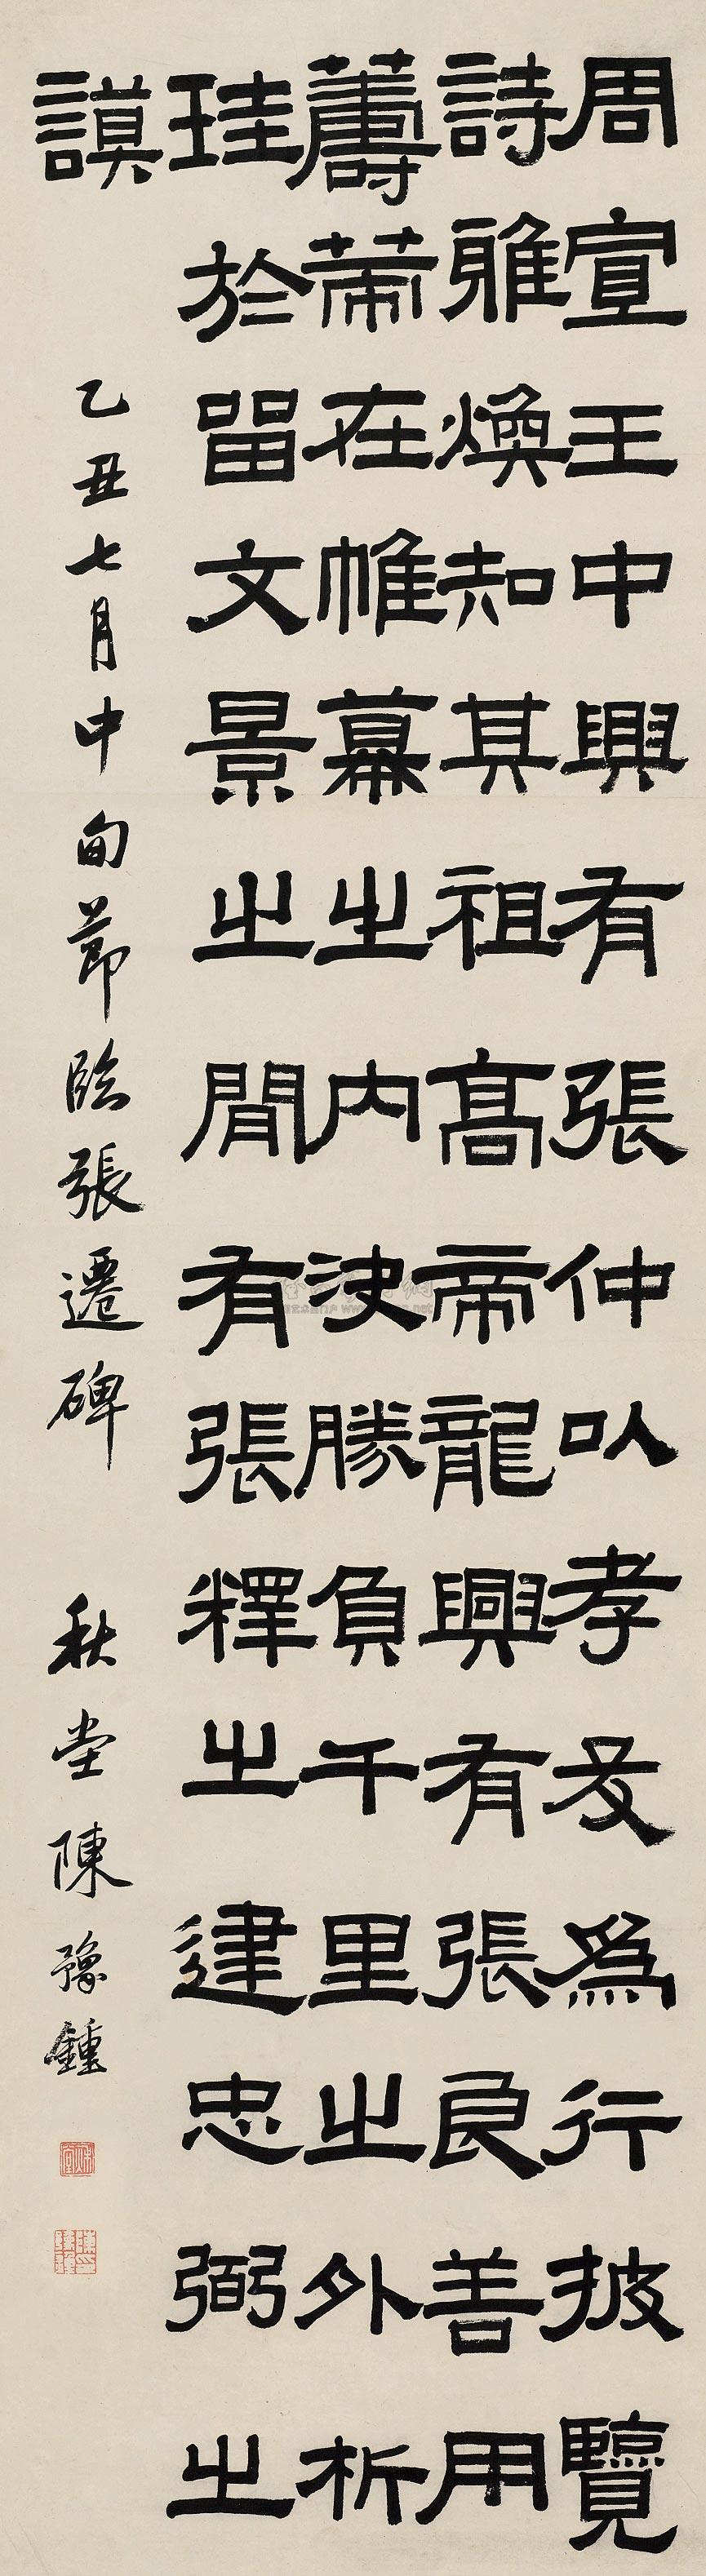 周宣王中興有張仲以孝友為行披覽
詩雅煥知其祖高帝龍興有張良善用
籌策在帷幕之內決勝負千里之外析
珪於留文景之間有張釋之建忠弼之
謨
乙丑七月中旬節臨張遷碑 秋堂陳豫鍾
秋堂